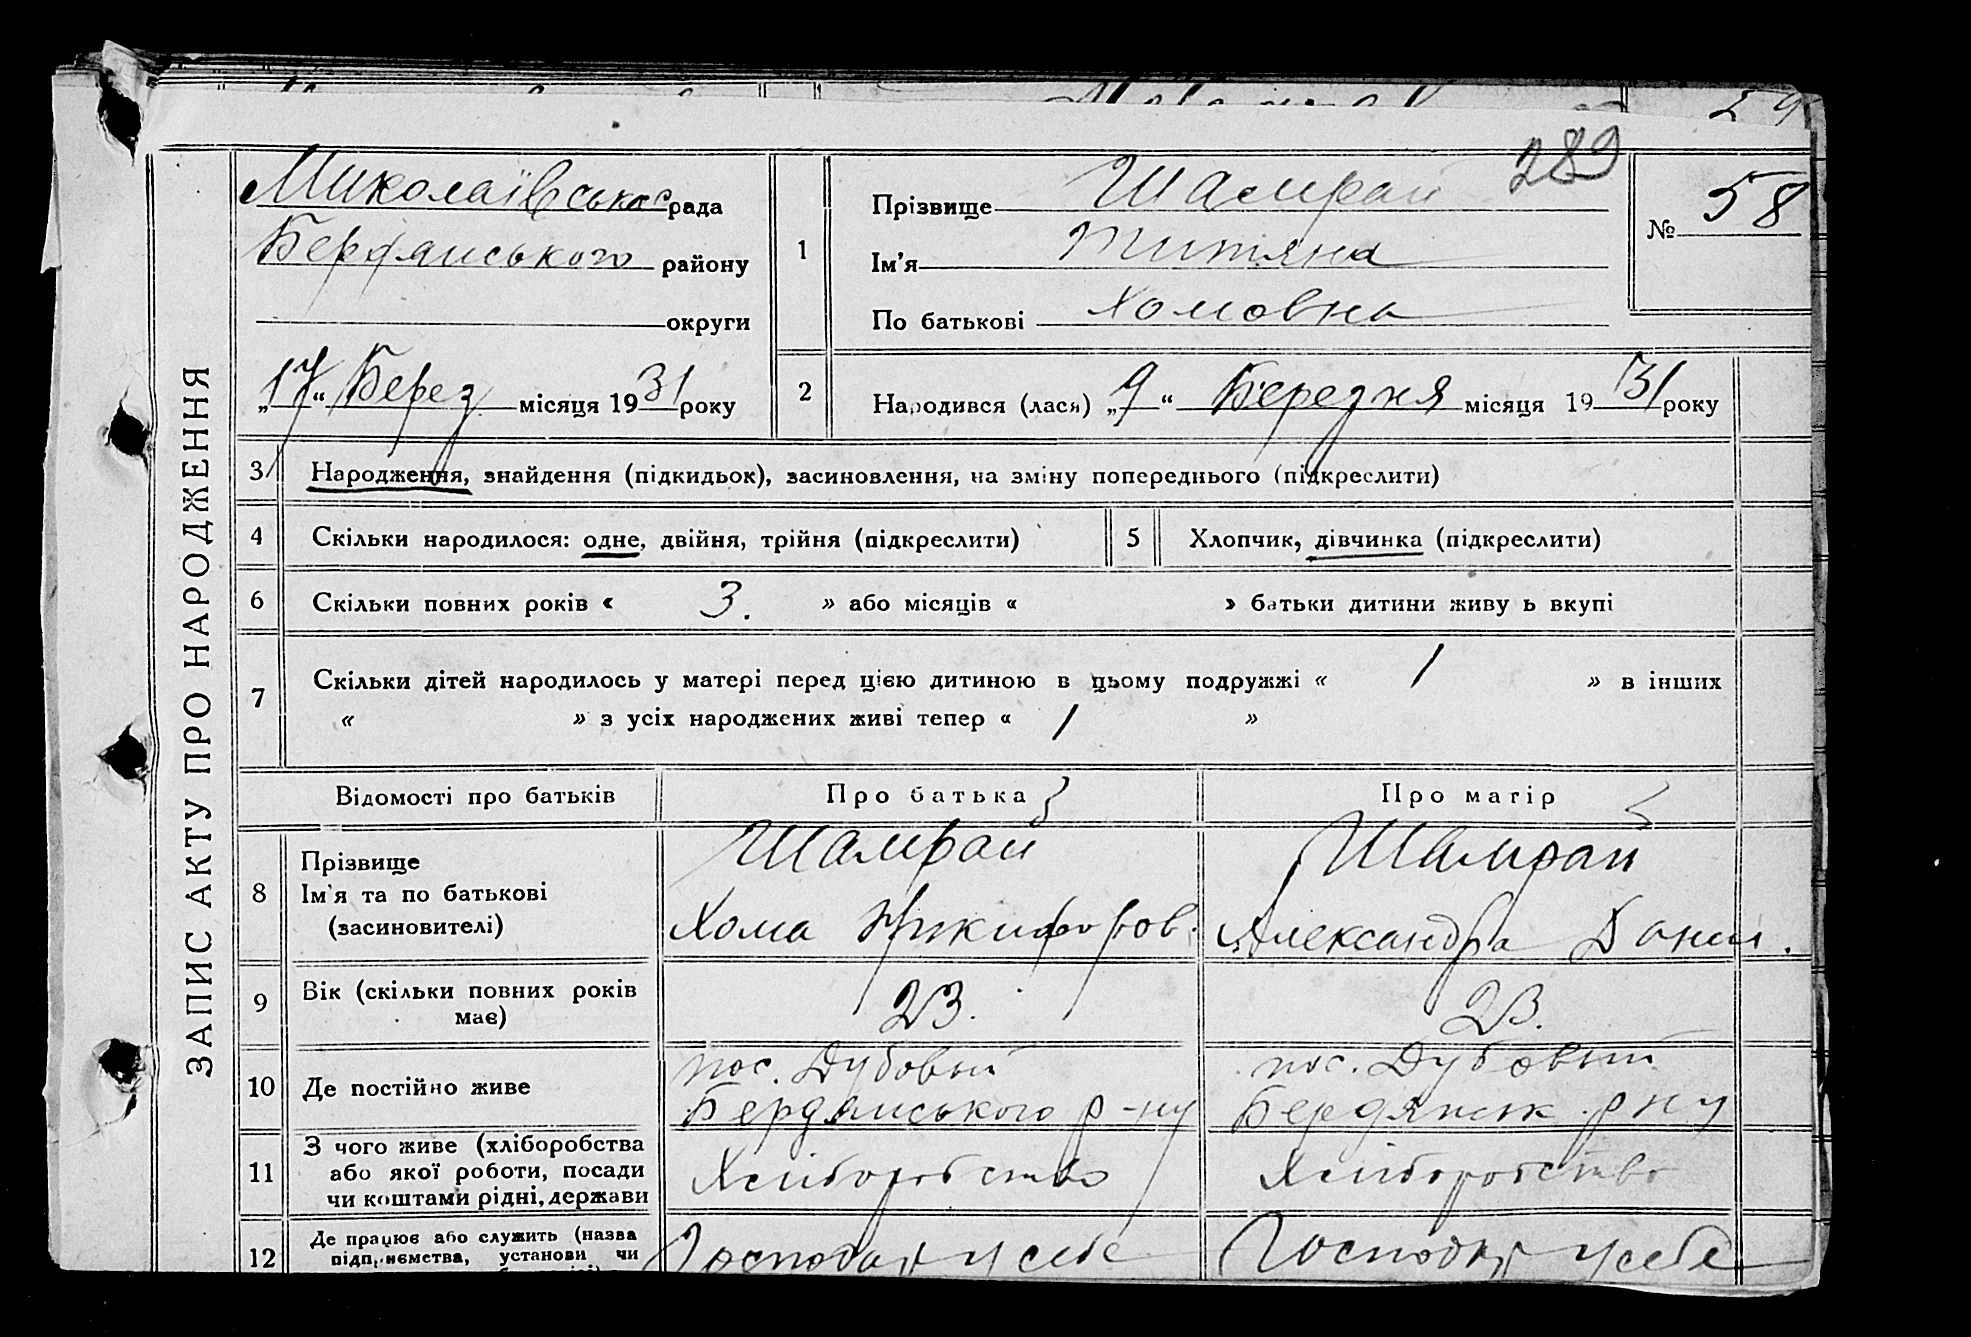 289
Миколаївська рада
Бердянського району
округи
„17“ Берез місяця 1931 року
ЗАПИС АКТУ ПРО НАРОДЖЕННЯ
1
Прізвище Шамрай
Ім’я Титяна
По батькові Хомовна
№ 58
2
Народився (лася) „9“ Березня місяця 1931 року
3 Народження, знайдення (підкидьок), засиновлення, на зміну попереднього (підкреслити)
4 Скільки народилося: одне, двійня, трійня (підкреслити)
5 Хлопчик, дівчинка (підкреслити)
6 Скільки повних років « 3. » або місяців « » батьки дитини живу ь вкупі
7 Скільки дітей народилось у матері перед цією дитиною в цьому подружжі « 1 » в інших
« » з усіх народжених живі тепер « 1 »
Відомості про батьків Про батька Про матір
8 Прізвище Шамрай Шамрай
Ім’я та по батькові
(засиновителі) Хома Никифоров. Александра Данил.
9 Вік (скільки повних років
має) 23. 23.
10 Де постійно живе пос. Дубовый пос. Дубовый
Бердянського р-ну Бердянськ. р ну
11 З чого живе (хліборобства
або якої роботи, посади Хліборобство Хліборобство
чи коштами рідні, держави
12 Де працює або служить (назва
підприємства, установи чи Господар у себе Господар у себе